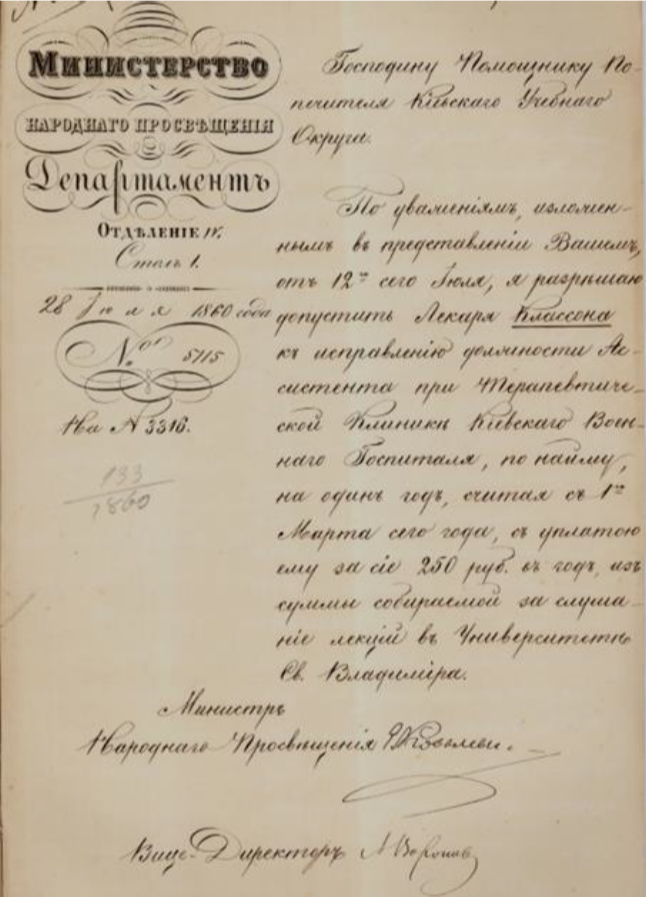 Министерство
НАРОДНАГО ПРОСВѢЩЕНІЯ
Департаментъ
ОТДѢЛЕНІЕ IV.
Столъ 1.
28 Іюля 1860 года
№ 5715
На № 3316.
133
1860
Господину Помощнику По-
печителя Кіевскаго Учебнаго
Округа.
По уваженіямъ, изложен-
нымъ въ представленіи Вашемъ,
отъ 12го сего Іюля, я разрѣшаю
допустить Лекаря Классона
къ исправленію должности Ас-
систента при Терапевтиче-
ской Клиникѣ Кіевскаго Воен-
наго Госпиталя, по найму,
на одинъ годъ, считая съ 1го
Марта сего года, съ уплатою
ему за сіе 250 руб. въ годъ, изъ
суммы собираемой за слуша-
ніе лекцій въ Университетѣ
Св. Владиміра.
Министръ
Народнаго Просвѣщенія
Вице-Директоръ А. Вороновъ